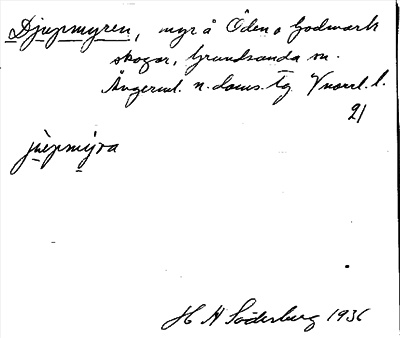 Djupmyren, myr å Öden o Godmark
skogar, Grundsunda sn.
Ångerml. n. doms. tg Vnorrl. l.
21
jùpmýra
H A Söderberg 1936